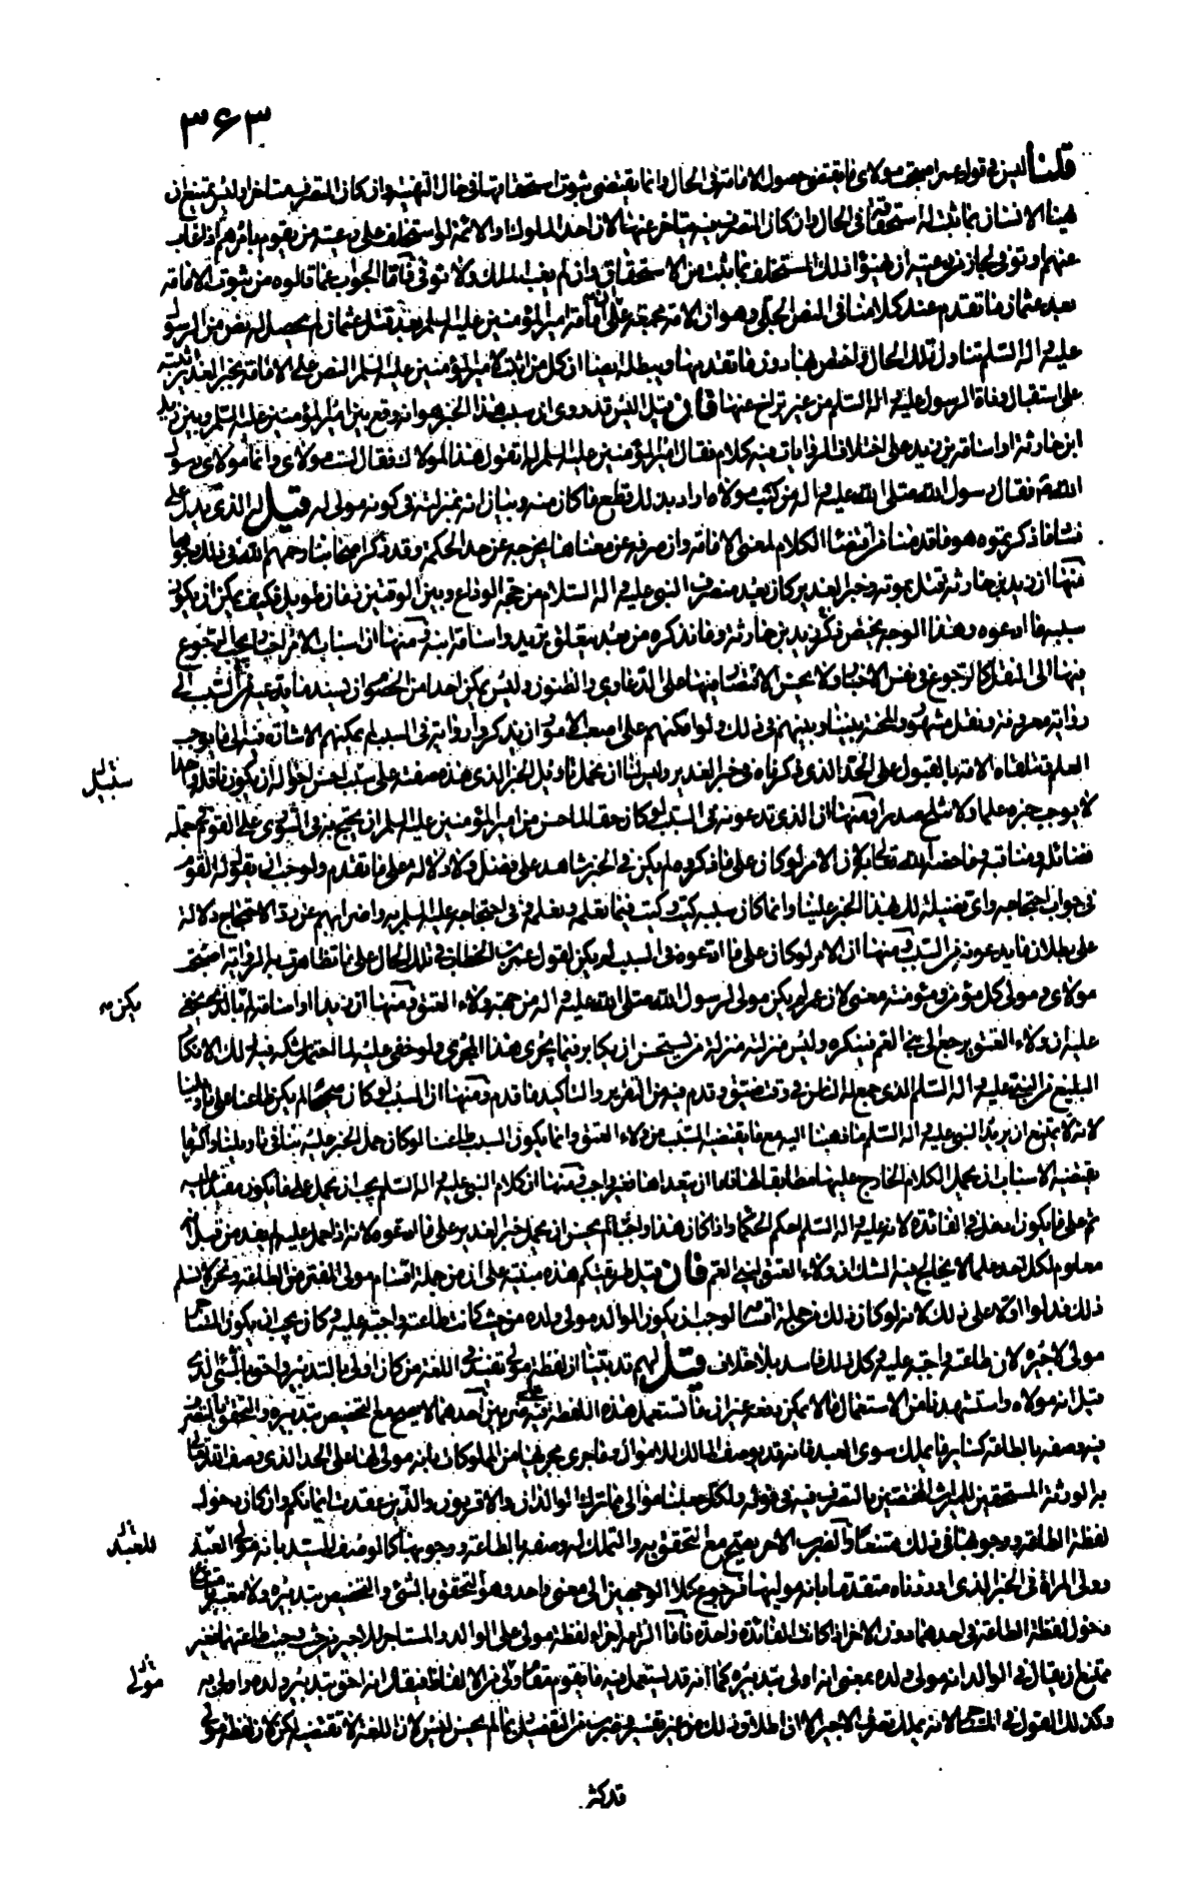 ٣۶٣
قلنا ليس في قول عمر اصبحت مولاي ما يقتضي حصول الامامة في الحال وانما يقتضي ثبوت استحقاقها في حال التهنئة وان كان التصرف متاخرا وليس يمتنع ان
يهنأ الانسان بما يثبت له استحقاقه في الحال وان كان التصرف فيه يتاخر عنها لان احد الملوك والائمة لو استخلف على رعيته من يقوم بامرهم اذا غاب
عنهم او توفي لجاز من رعيته ان يهنئوا ذلك المستخلف بما يثبت من الاستحقاق وان لم يغب الملك ولا توفي فاما الجواب عما قالوه من ثبوت الامامة
بعد عثمان ما تقدم عند كلامنا في النص الجلي وهو ان الامة مجمعة على ان امامة امير المؤمنين عليه السلم بعد قتل عثمان لم يحصل له بنص من الرسول
عليه واله السلم تناول تلك الحال واختص بها دون ما تقدمها ويبطله ايضا ان كل من اثبت لامير المؤمنين عليه السلم النص على الامامة بخبر الغدير اثبته
على استقبال وفاة الرسول عليه واله السلم من غير تراخ عنها فان قيل اليس قد روى ان سبب هذا الخبر هو انه وقع بين امير المؤمنين عليه السلم وبين زيد
ابن حارثة او اسامة بن زيد على اختلاف الروايات فيه كلام فقال امير المؤمنين عليه السلم له تقول هذا لمولاك فقال لست مولاي وانما مولاي رسول
الله فقال رسول الله صلى الله عليه واله من كنت مولاه اراد بذلك قطع ما كان منه وبيان انه بمنزلته في كونه مولى له قيل له الذي يدل على
فساد ما ذكرتموه هو ما قدمناه من اقتضاء الكلام لمعنى الامامة وان صرفه عن معناها يخرجه عن حد الحكمة وقد ذكر اصحابنا رحمهم الله في ذلك وجوها
منها ان زيد بن حارثة قتل بمؤتة وخبر الغدير كان بعد منصرف النبي عليه واله السلام من حجة الوداع وبين الوقتين زمان طويل فكيف يمكن ان يكون
سببه ما ادعوه وهذا الوجه يختص ذكر زيد بن حارثة وما نذكره من بعد يتعلق بزيد واسامة ابنه ومنها ان اسباب الاخبار يجب الرجوع
فيها الى النقل كالرجوع في نفس الاخبار ولا يحسن الاقتصار فيها على الدعاوي والظنون وليس يمكن احدا من الخصوم ان يسند ما يدعيه من السبب الى
رواية معروفة ونقل مشهور والمحنة بيننا وبينهم في ذلك ولو امكنهم على اصعب الامور ان يذكروا رواية في السبب لم يمكنهم الاشارة فيه الى ما يوجب
العلم وتتلقاه الامة بالقبول على الحد الذي ذكرناه في خبر الغدير وليس لنا ان نحمل تاويل الخبر الذي هذه صفته على سبب احسن احواله ان يكون ناقله واحدا
سبيل
لا يوجب خبره علما ولا يثلج صدرا ومنها ان الذي تدعونه في السبب لو كان حقا لما حسن من امير المؤمنين عليه السلم ان يحتج به في الشورى على القوم في جملة
فضائله ومناقبه وما خصه الله تعالى به لان الامر لو كان على ما ذكروه لم يكن في الخبر شاهد على فضل ولا دلالة على ما تقدم ولوجب ان يقول له القوم
في جواب احتجاجه واي فضيلة لك بهذا الخبر علينا وانما كان سببه كيت وكيت فيما نعلمه وتعلمه وفي احتجاجه عليه السلم به واضرابهم عن رد الاحتجاج دلالة
على بطلان ما يدعونه من السبب ومنها ان الامر لو كان على ما ادعوه في السبب لم يكن لقول عمر بن الخطاب في تلك الحال على ما تظاهرت به الرواية اصبحت
مولاي ومولى كل مؤمن ومؤمنة معنى لان عمر لم يكن مولى لرسول الله صلى الله عليه واله من جهة ولاء العتق ومنها ان زيدا او اسامة لم بالذي يخفى
يكن صح
عليه ان ولاء العتق يرجع الى بني العم فينكره وليس منزلته منزلة من يستحسن ان يكابر فيما يجري هذا المجرى ولو خفي عليه لما احتمل شكه فيه ذلك الانكار
البليغ من النبي عليه واله السلم الذي جمع له الناس في وقت ضيق وقدم فيه من التقرير والتاكيد ما قدم ومنها ان السبب لو كان صحيحا لم يكن طاعنا على تاويلنا
لانه لا يمتنع ان يريد النبي عليه واله السلم ما ذهبنا اليه مع ما يقتضيه السبب من ولاء العتق وانما يكون السبب طاعنا لو كان حمل الخبر عليه ينافي تاويلنا واكثر ما
يقتضيه الاسباب ان يحمل الكلام الخارج عليها مطابقا لها فاما ان يتعداها فغير واجب ومنها ان كلام النبي عليه واله السلم يجب ان يحمل على ما يكون مفيدا
ثم على ما يكون ادخل في الفائدة لانه عليه واله السلم احكم الحكماء واذا كان هذا واجبا لم يحسن ان يحمل خبر الغدير على ما ادعوه لانه اذا حمل عليه لم يفد من قبل انه
معلوم لكل احد علما لا يخالج فيه الشك ان ولاء العتق لبني العم فان قيل طريقتكم هذه مبنية على ان من جملة اقسام مولى المفترض الطاعة ونحن لا نسلم
ذلك فدلوا اولا على ذلك لانه لو كان ذلك من جملة اقسامه لوجب ان يكون الوالد مولى ولده من حيث كانت طاعته واجبة عليه وكان يجب ان يكون المستاجر
مولى لاجيره لان طاعته واجبة عليه وكل ذلك فاسد بلا خلاف قيل لهم قد بينا ان لفظة مولى تفيد في اللغة من كان اولى بالتدبير واحق بالشيء الذي
قيل انه مولاه واستشهدنا من الاستعمال بما لا يمكن دفعه غير ان ما تستعمل هذه اللفظة فيه على ضربين احدهما لا يصح مع التخصيص بتدبيره والتحقق بالتصرف
فيه وصفه بالطاعة كسائر ما يملك سوى العبد فانه قد يوصف المالك للاموال وما جرى مجراها من المملوكات بانه مولى لها على الحد الذي وصف الله تعالى
به الورثة المستحقين للميراث المختصين بالتصرف فيه في قوله ولكل جعلنا موالي مما ترك الوالدان والاقربون والذين عقدت ايمانكم وان كان دخول
لفظة الطاعة ووجوبها في ذلك ممتنعا والضرب الاخر يصح مع التحقق به والتملك له وصفه بالطاعة ووجوبها كالوصف للسيد بانه مولى العبد
للعبد
وولي المراة في الخبر الذي اوردناه متقدما بانه موليها فرجوع كلا الوجهين الى معنى واحد وهو التحقق بالشيء والتخصيص بتدبيره ولا معتبر بامتناع
دخول لفظة الطاعة في احدهما دون الاخر اذا كانت الفائدة واحدة فاما الزامهم اجراء لفظة مولى على الوالد والمستاجر للاجير من حيث وجبت طاعتهما فغير
ممتنع ان يقال في الوالد انه مولى ولده بمعنى انه اولى بتدبيره كما انه قد يستعمل فيه ما يقوم مقام مولى من الالفاظ فيقال انه احق بتدبير ولده واولى به
مولى
وكذلك القول في المستاجر لانه يملك تصرف الاجير الا ان اطلاق ذلك من غير تقييد وضرب من التفصيل ربما لم يحسن ليس لان اللغة لا تقتضيه لكن لان لفظة مولى
قد كثر